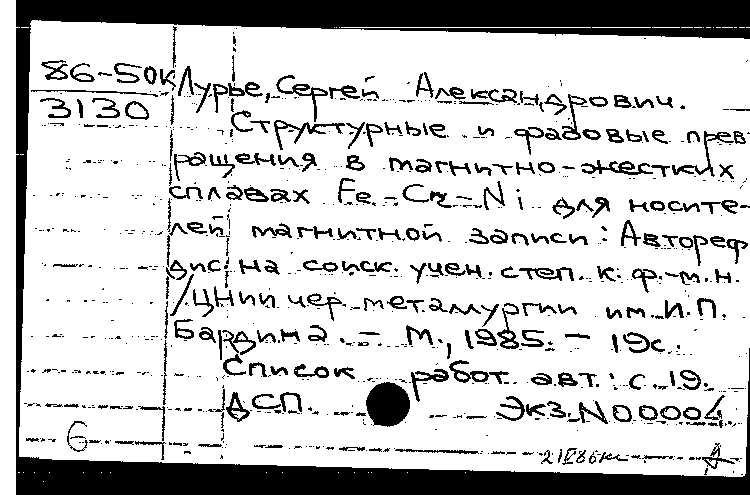 86-50к Лурье, Сергей Александрович.
3130
Структурные и фазовые прев-
ращения в магнитно-жестких
сплавах Fe-Cr-Ni для носите-
лей магнитной записи: Автореф
дис. на соиск. учен. степ. к. ф.-м.н.
/ЦНИИ чер. металлургии им. И.П.
Бардина. - М., 1985. - 19с.
Список работ авт.: с. 19.
ДСП. Экз. N00004
6